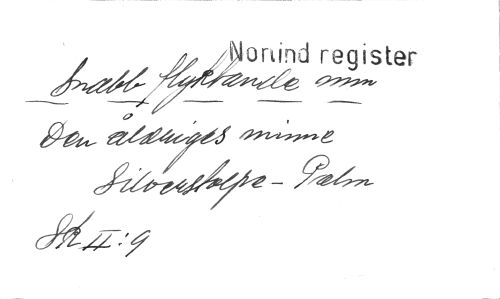 Nonind register
Snabb flyktande min
Den åldriges minne
Silverstolpe - Palm
SK II:9